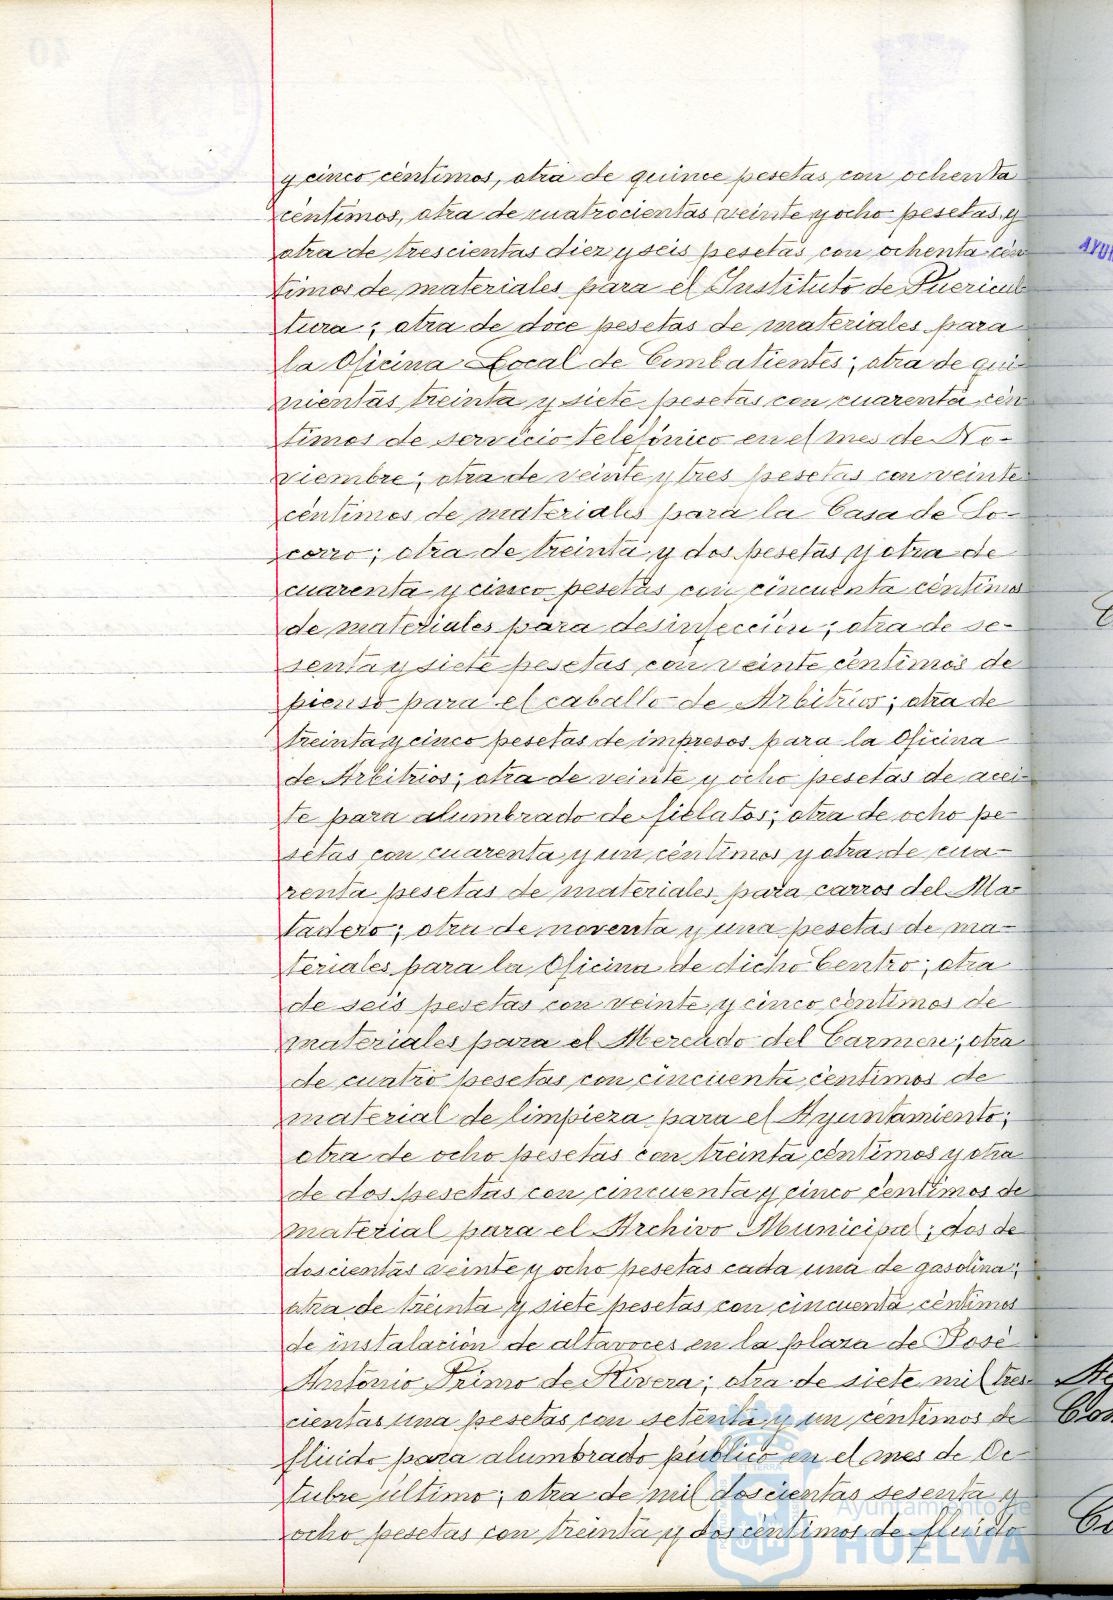 y cinco céntimos, otra de quince pesetas con ochenta
céntimos, otra de cuatrocientas veinte y ocho pesetas, y
otra de trescientas diez y seis pesetas con ochenta cén
timos de materiales para el Instituto de Puericul
tura; otra de doce pesetas de materiales para
la Oficina Local de Combatientes; otra de qui-
nientas treinta y siete pesetas con cuarenta cén
timos de servicio telefónico en el mes de No-
viembre; otra de veinte y tres pesetas con veinte
céntimos de materiales para la Casa de So-
corro; otra de treinta y dos pesetas y otra de
cuarenta y cinco pesetas con cincuenta céntimos
de materiales para desinfección; otra de se-
senta y siete pesetas con veinte céntimos de
pienso para el caballo de Arbitrios; otra de
treinta y cinco pesetas de impresos para la Oficina
de Arbitrios; otra de veinte y ocho pesetas de acei-
te para alumbrado de fielatos; otra de ocho pe-
setas con cuarenta y un céntimos y otra de cua-
renta pesetas de materiales para carros del Ma-
tadero; otra de noventa y una pesetas de ma-
teriales para la Oficina de dicho Centro; otra
de seis pesetas con veinte y cinco céntimos de
materiales para el Mercado del Carmen; otra
de cuatro pesetas con cincuenta céntimos de
material de limpieza para el Ayuntamiento;
otra de ocho pesetas con treinta céntimos y otra
de dos pesetas con cincuenta y cinco céntimos de
material para el Archivo Municipal; dos de
doscientas veinte y ocho pesetas cada una de gasolina;
otra de treinta y siete pesetas con cincuenta céntimos
de instalación de altavoces en la plaza de José
Antonio Primo de Rivera; otra de siete mil tres-
cientas una pesetas con setenta y un céntimos de
fluido para alumbrado público en el mes de Oc-
tubre último; otra de mil doscientas sesenta y
ocho pesetas con treinta y dos céntimos de fluido
Ayuntamiento de
HUELVA